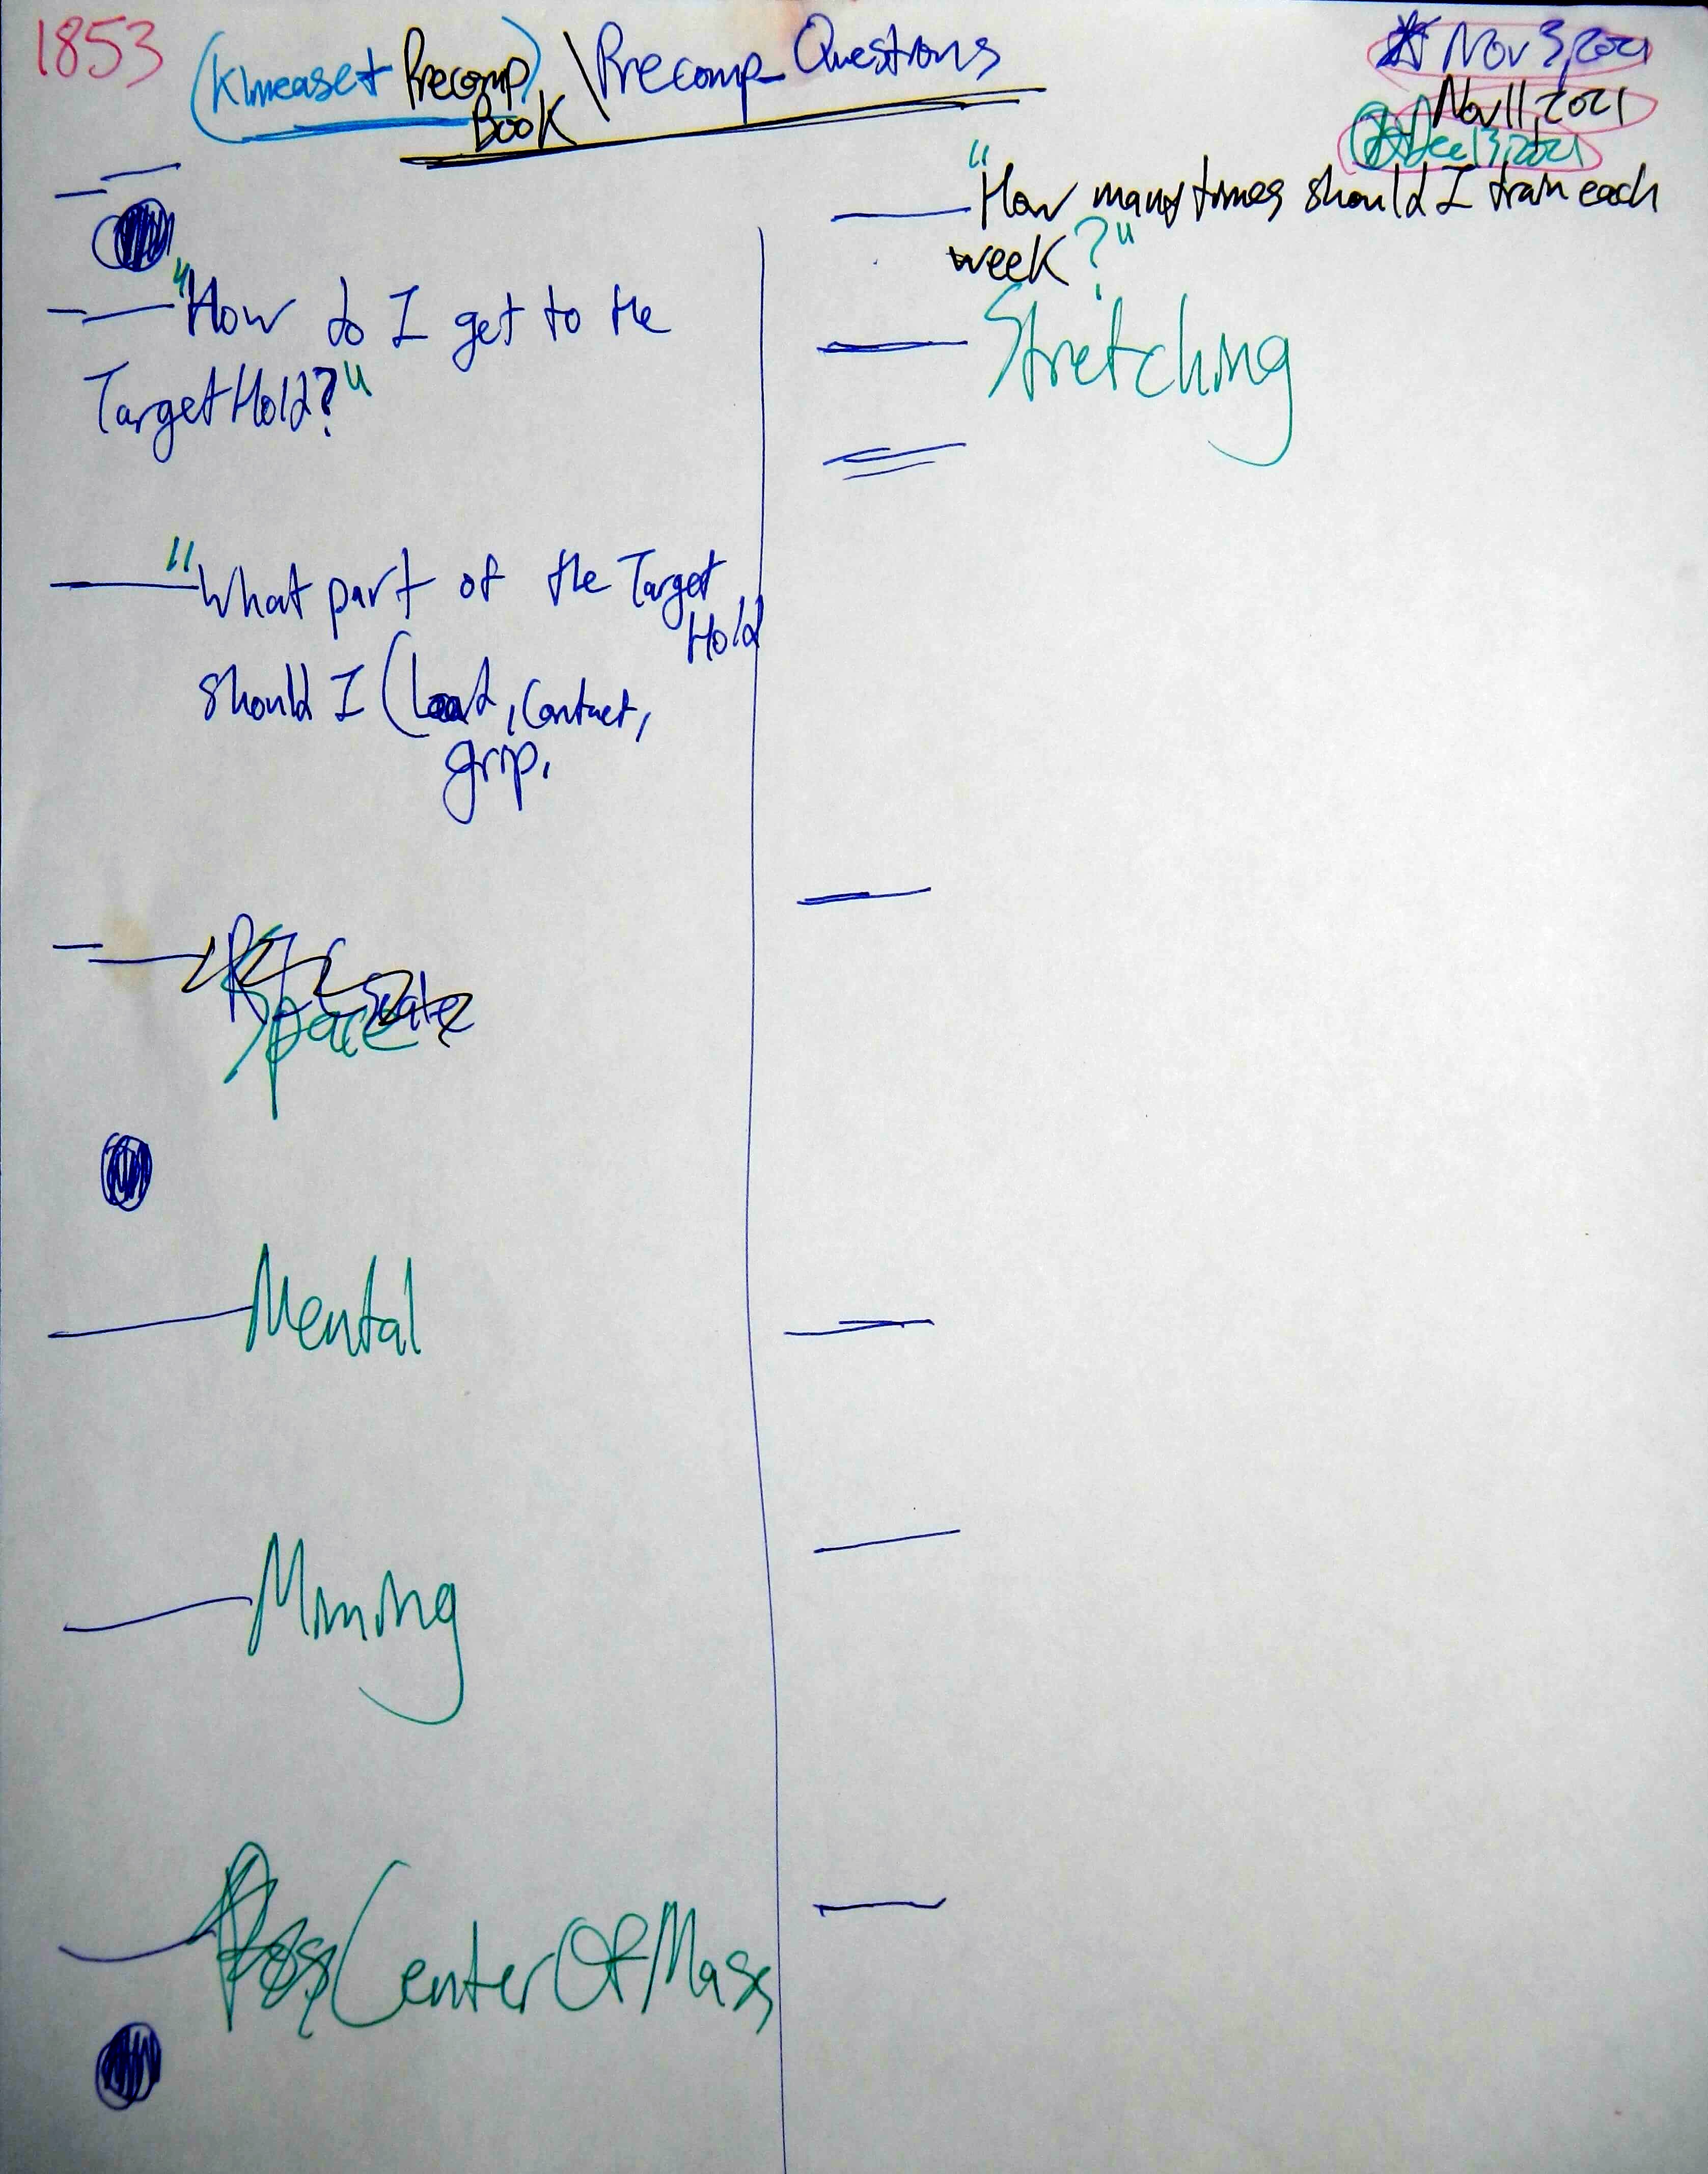 1853
(Kimeaset Precomp) \Precomp_Questions
Book
Nov 3, 2021
Nov 11, 2021
Dec 13, 2021
"How do I get to the
Target Hold?"
"What part of the Target
Hold
should I (Load, Contact,
grip,
Space
Mental
Mining
Pos CenterOfMass
"How many times should I train each
week?"
Stretching